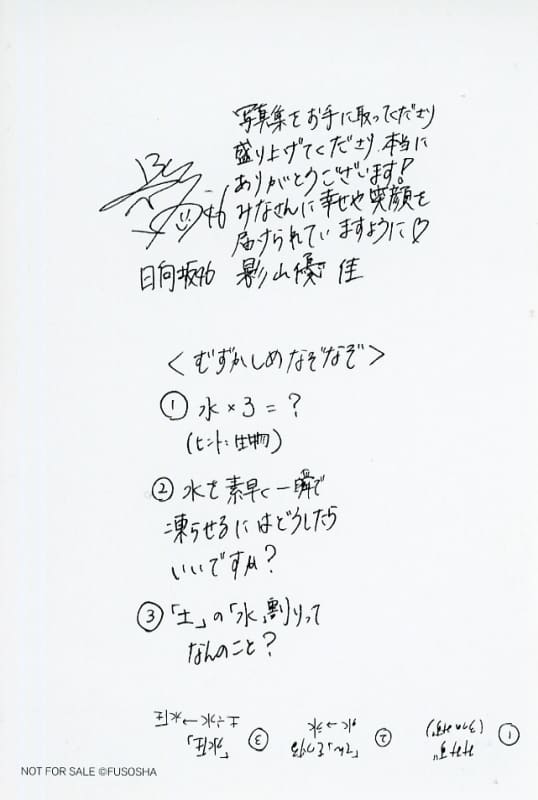 写真集をお手に取ってくださり
盛り上げてくださり、本当に
ありがとうございます!
みなさんに幸せや笑顔を
届けられていますように♡
日向坂46 影山優佳
<むずかしめなぞなぞ>
① 水×3=?
(ヒント:生物)
② 水を素早く一瞬で
凍らせるにはどうしたら
いいですか?
③「土」の「水」割りって
なんのこと?
①
ミミズ
②
「てん」をつける
水→氷
③
「水圧」
土÷水→水圧
NOT FOR SALE ©FUSOSHA